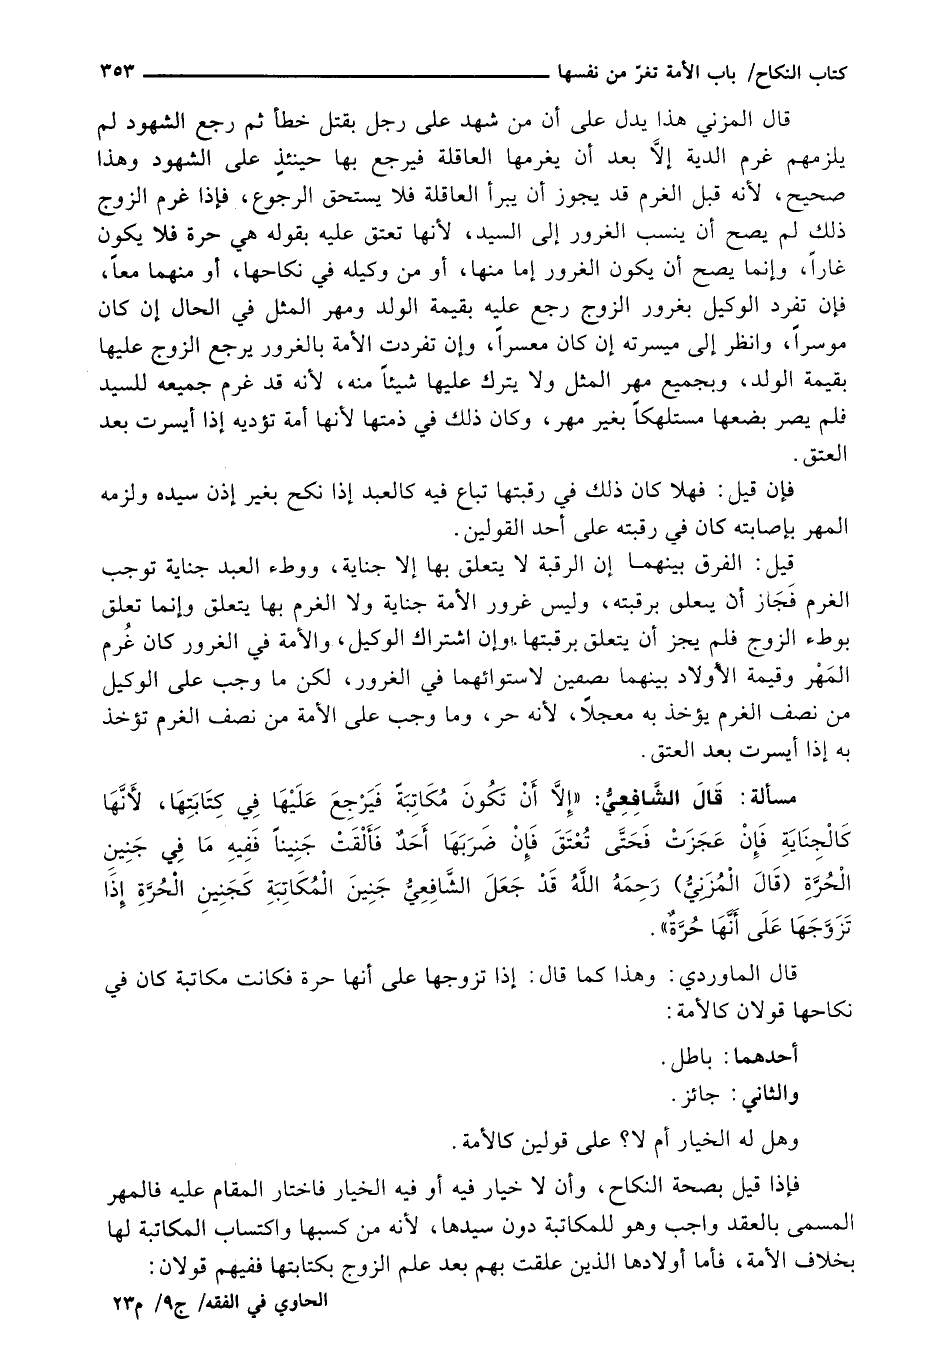 كتاب النكاح/ باب الأمة تغرّ من نفسها ٣٥٣
قال المزني هذا يدل على أن من شهد على رجل بقتل خطأ ثم رجع الشهود لم
يلزمهم غرم الدية إلَّا بعد أن يغرمها العاقلة فيرجع بها حينئذٍ على الشهود وهذا
صحيح، لأنه قبل الغرم قد يجوز أن يبرأ العاقلة فلا يستحق الرجوع، فإذا غرم الزوج
ذلك لم يصح أن ينسب الغرور إلى السيد، لأنها تعتق عليه بقوله هي حرة فلا يكون
غاراً، وإنما يصح أن يكون الغرور إما منها، أو من وكيله في نكاحها، أو منهما معاً،
فإن تفرد الوكيل بغرور الزوج رجع عليه بقيمة الولد ومهر المثل في الحال إن كان
موسراً، وانظر إلى ميسرته إن كان معسراً، وإن تفردت الأمة بالغرور يرجع الزوج عليها
بقيمة الولد، وبجميع مهر المثل ولا يترك عليها شيئاً منه، لأنه قد غرم جميعه للسيد
فلم يصر بضعها مستلهكاً بغير مهر، وكان ذلك في ذمتها لأنها أمة تؤديه إذا أيسرت بعد
العتق.
فإن قيل: فهلا كان ذلك في رقبتها تباع فيه كالعبد إذا نكح بغير إذن سيده ولزمه
المهر بإصابته كان في رقبته على أحد القولين.
قيل: الفرق بينهما إن الرقبة لا يتعلق بها إلا جناية، ووطء العبد جناية توجب
الغرم فَجَاز أن يتعلق برقبته، وليس غرور الأمة جناية ولا الغرم بها يتعلق وإنما تعلق
بوطء الزوج فلم يجز أن يتعلق برقبتها وإن اشتراك الوكيل، والأمة في الغرور كان غُرم
المَهْر وقيمة الأولاد بينهما نصفين لاستوائهما في الغرور، لكن ما وجب على الوكيل
من نصف الغرم يؤخذ به معجلاً، لأنه حر، وما وجب على الأمة من نصف الغرم تؤخذ
به إذا أيسرت بعد العتق.
مسألة: قَالَ الشَّافِعِيُّ: «إِلَّا أَنْ تَكُونَ مُكَاتِبَةً فَيَرْجِعَ عَلَيْهَا فِي كِتَابَتِهَا، لَأَنَّهَا
كَالْجِنَايَةِ فَإِنْ عَجَزَتْ فَحَتَّى تُعْتَقَ فَإِنْ ضَرَبَهَا أَحَدٌ فَأَلْقَتْ جَنِيناً فَفِيهِ مَا فِي جَنِينِ
الْحُرَّةِ (قَالَ الْمُزَنِيُّ) رَحِمَهُ اللَّهُ قَدْ جَعَلَ الشَّافِعِيُّ جَنِينَ الْمُكَاتِبَةِ كَجَنِينِ الْحُرَّةِ إِذَا
تَزَوَّجَهَا عَلَى أَنَّهَا حُرَّةٌ».
قال الماوردي: وهذا كما قال: إذا تزوجها على أنها حرة فكانت مكاتبة كان في
نكاحها قولان كالأمة:
أحدهما: باطل.
والثاني: جائز.
وهل له الخيار أم لا؟ على قولين كالأمة.
فإذا قيل بصحة النكاح، وأن لا خيار فيه أو فيه الخيار فاختار المقام عليه فالمهر
المسمى بالعقد واجب وهو للمكاتبة دون سيدها، لأنه من كسبها واكتساب المكاتبة لها
بخلاف الأمة، فأما أولادها الذين علقت بهم بعد علم الزوج بكتابتها ففيهم قولان:
الحاوي في الفقه/ ج٩/ م٢٣